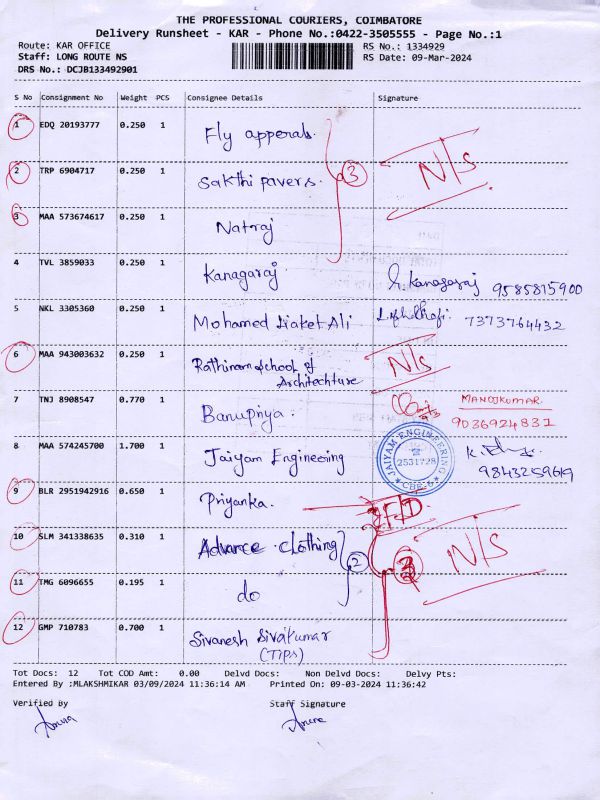 THE PROFESSIONAL COURIERS, COIMBATORE
Delivery Runsheet - KAR - Phone No.:0422-3505555 - Page No.:1
Route: KAR OFFICE RS No.: 1334929
Staff: LONG ROUTE NS RS Date: 09-Mar-2024
DRS No.: DCJB133492901
S No Consignment No Weight PCS Consignee Details Signature
1 EDQ 20193777 0.250 1 Fly apperals.
2 TRP 6904717 0.250 1 Sakthi pavers. 3 N/S
3 MAA 573674617 0.250 1 Natraj
4 TVL 3859033 0.250 1 Kanagaraj Kanagaraj 9585815900
5 NKL 3305360 0.250 1 Mohamed Liaket Ali 7373764432
6 MAA 943003632 0.250 1 Rathinam school of N/S
Architechture
7 TNJ 8908547 0.770 1 Banupriya. MANOJKUMAR
9036924831
8 MAA 574245700 1.700 1 Jaiyam Engineering JAIYAM ENGINEERING 2531728 CBE-6
9843259619
9 BLR 2951942916 0.650 1 Priyanka.
10 SLM 341338635 0.310 1 Advance clothing 2 N/S
11 TMG 6096655 0.195 1 do
12 GMP 710783 0.700 1 Sivanesh Sivakumar
(TIPS)
Tot Docs: 12 Tot COD Amt: 0.00 Delvd Docs: Non Delvd Docs: Delvy Pts:
Entered By :MLAKSHMIKAR 03/09/2024 11:36:14 AM Printed On: 09-03-2024 11:36:42
Verified By Staff Signature